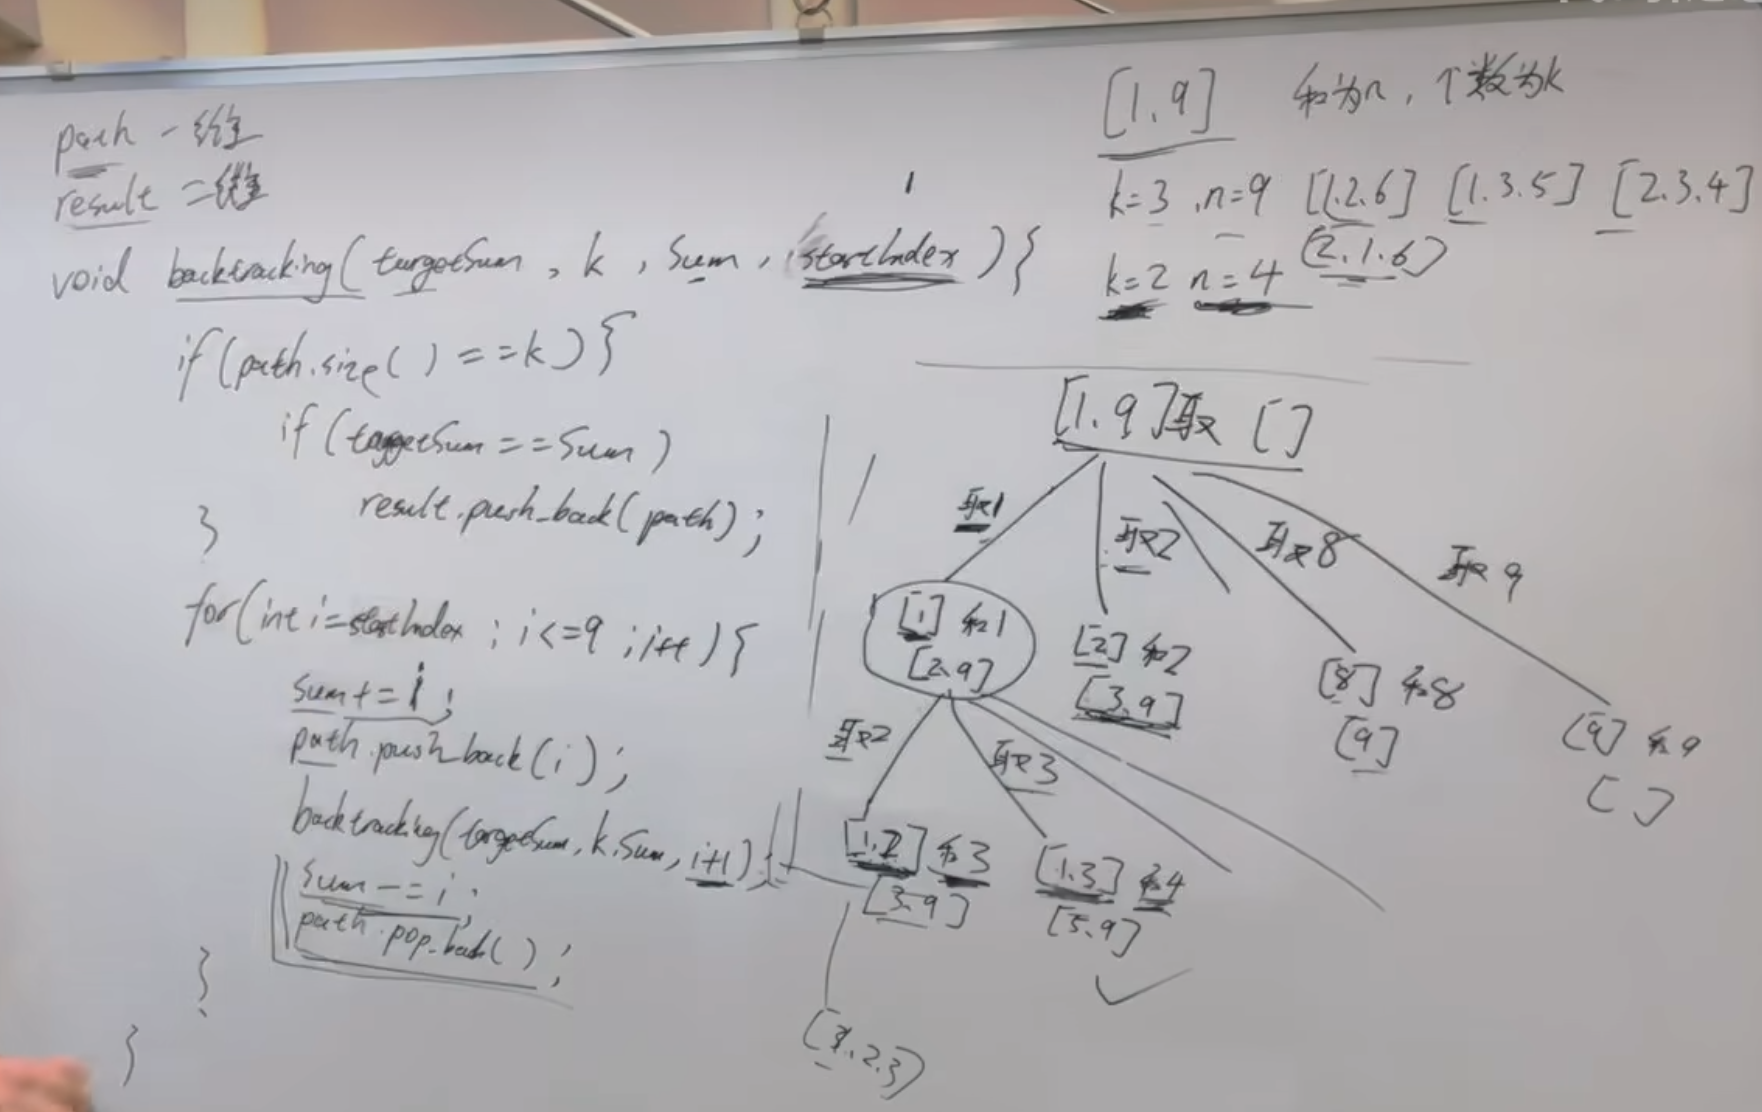 path 一维
result 二维
void backtracking(targetSum, k, Sum, startIndex){
1
if(path.size()==k){
if(taggetSum==Sum)
result.push_back(path);
}
for(int i=startIndex; i<=9; i++){
sum+=i;
path.push_back(i);
backtracking(targetSum, k, sum, i+1);
sum-=i;
path.pop_back();
}
}
[1.9] 和为n, 个数为k
k=3, n=9 [1.2.6] [1.3.5] [2.3.4]
(2.1.6)
k=2 n=4
[1.9]取 []
取1 取2 取8 取9
[1] 和1 [2] 和2 [8] 和8 [9] 和9
[2.9] [3.9] [9] []
取2 取3
[1.2] 和3 [1.3] 和4
[3.9] [5.9]
[1.2.3)